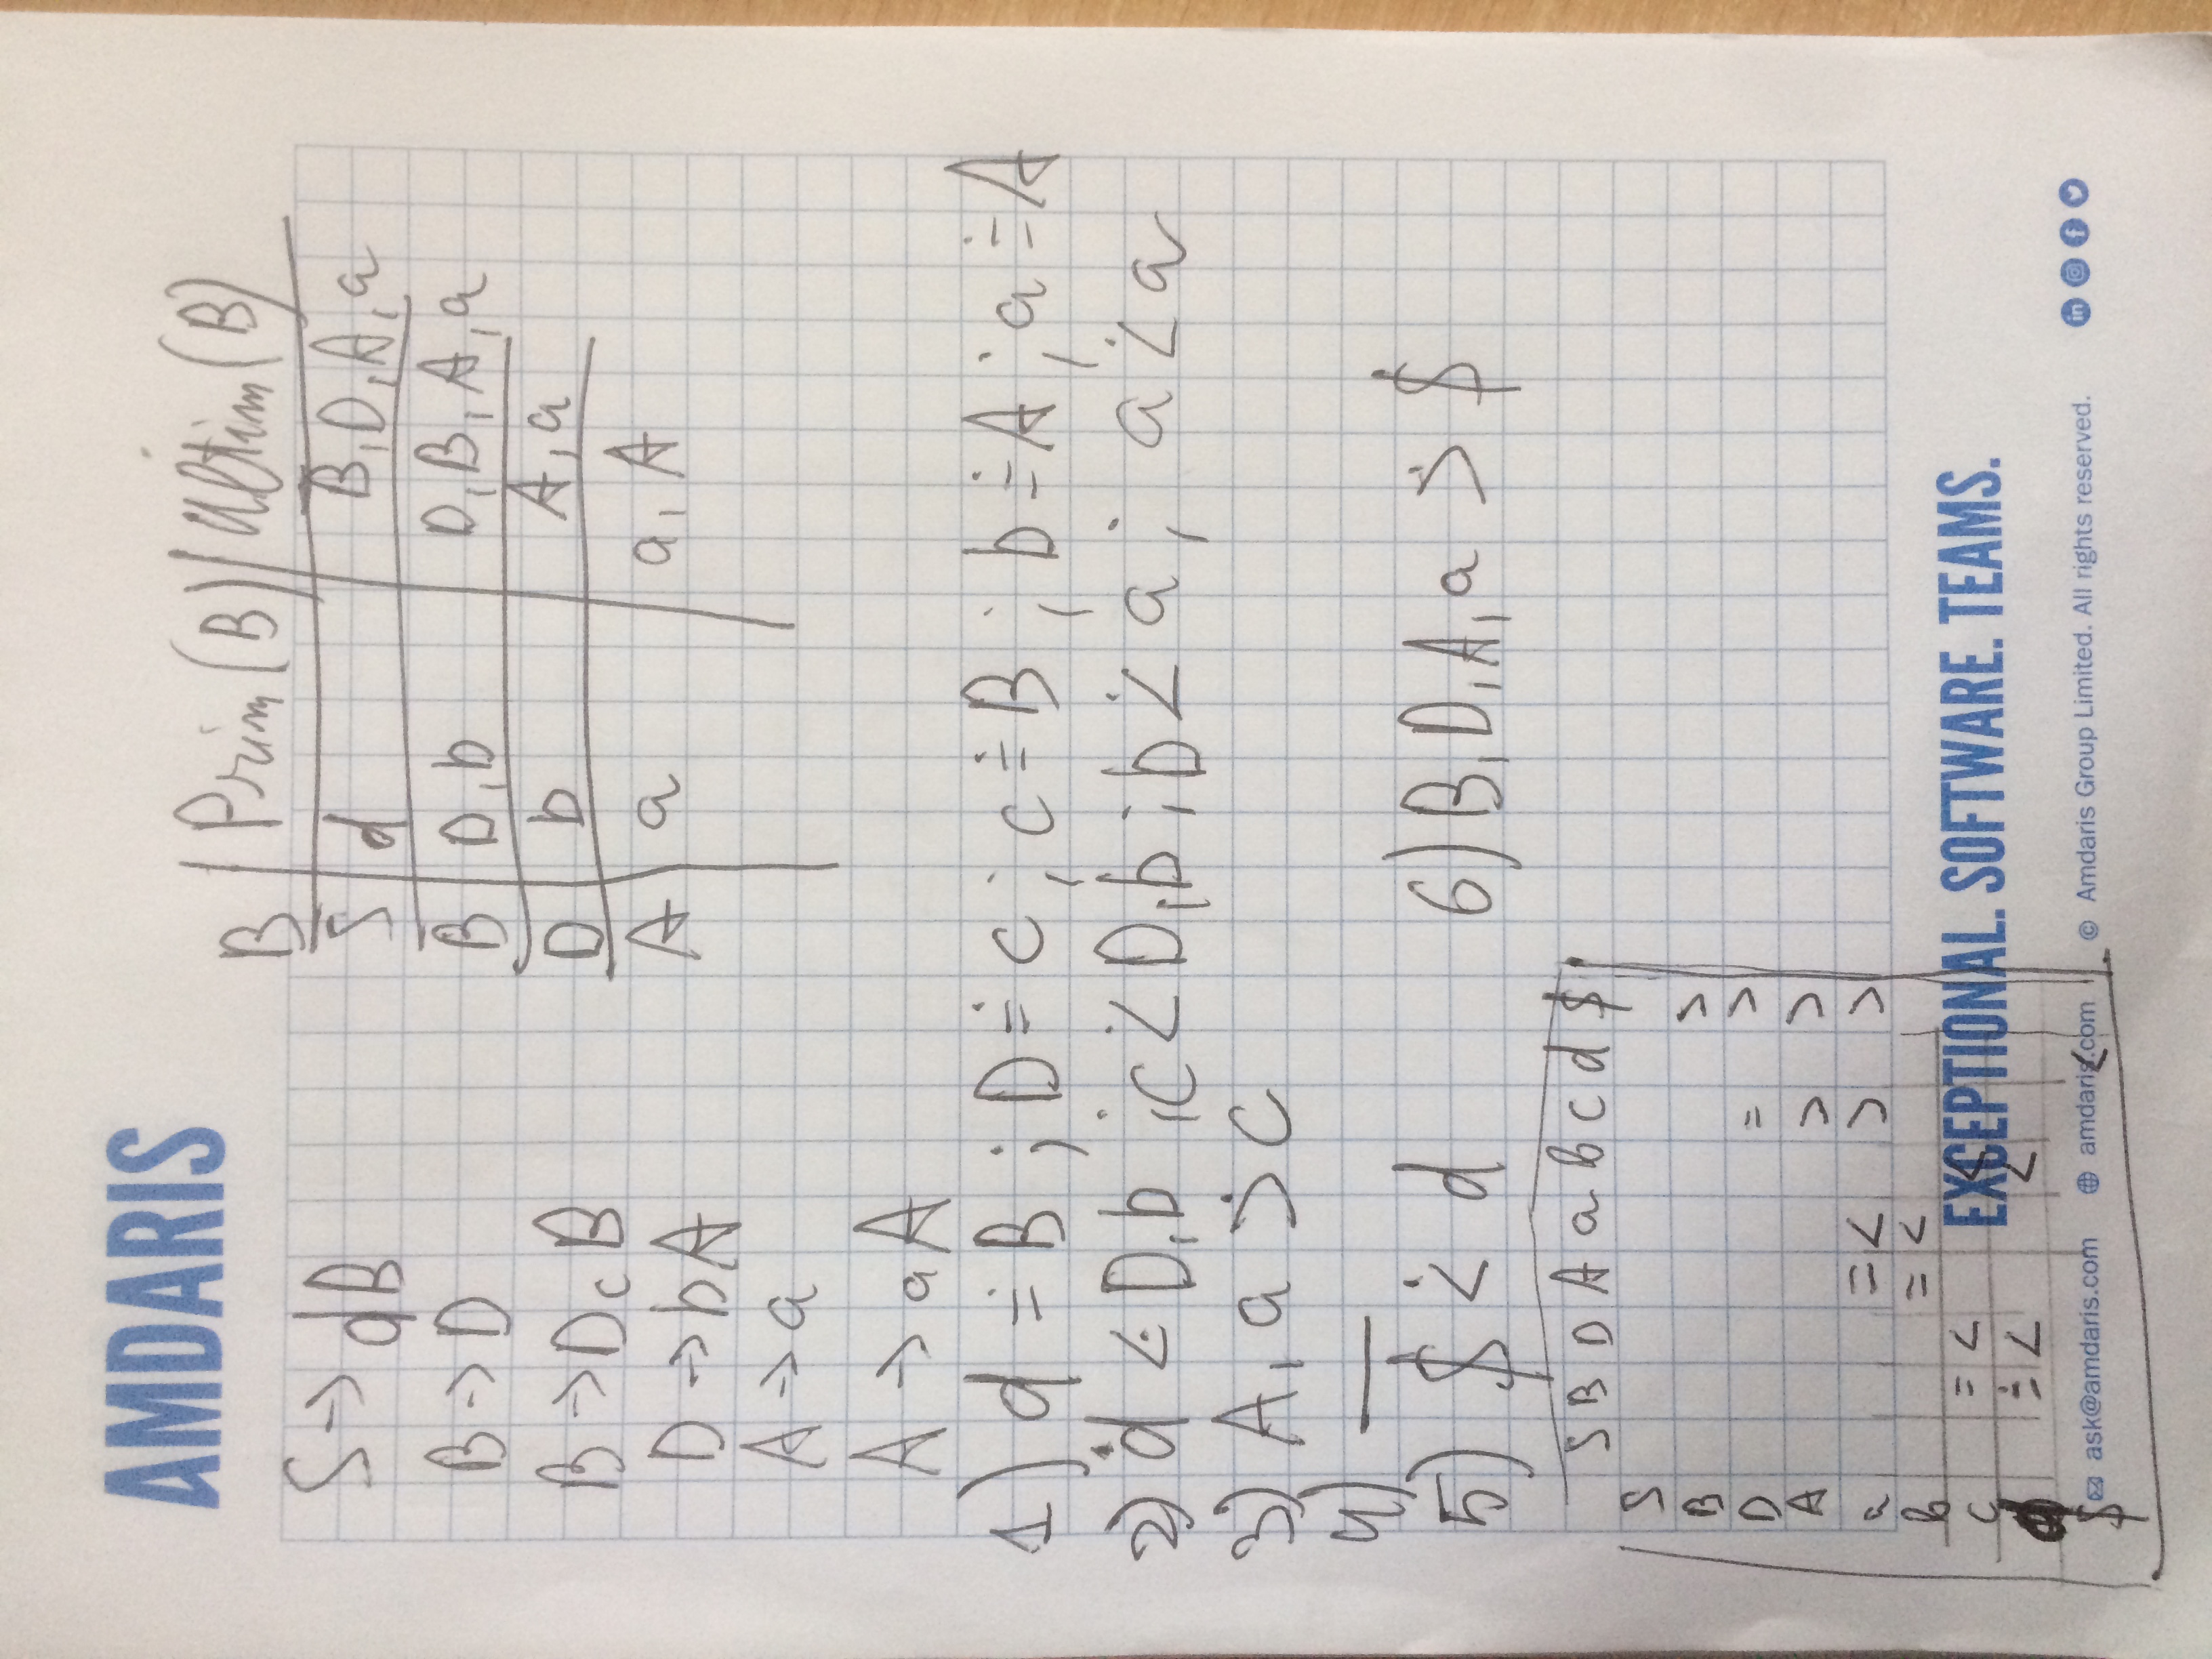 AMDARIS
S → dB
B → D
B → DcB
D → bA
A → a
A → aA
B | Prim(B) | Ultim(B)
S | d | B, D, A, a
B | D, b | D, B, A, a
D | b | A, a
A | a | a, A
1) d ≐ B ; D ≐ c ; c ≐ B ; b ≐ A ; a ≐ A
2) d ⋖ D, b ; c ⋖ D, b ; b ⋖ a ; a ⋖ a
3) A, a ⋗ c
4) —
5) $ ⋖ d 6) B, D, A, a ⋗ $
S B D A a b c d $
S
B >
D = >
A > >
a = < > >
b = <
c = < <
d ≐ < <
$ <
EXCEPTIONAL. SOFTWARE. TEAMS.
ask@amdaris.com amdaris.com © Amdaris Group Limited. All rights reserved.